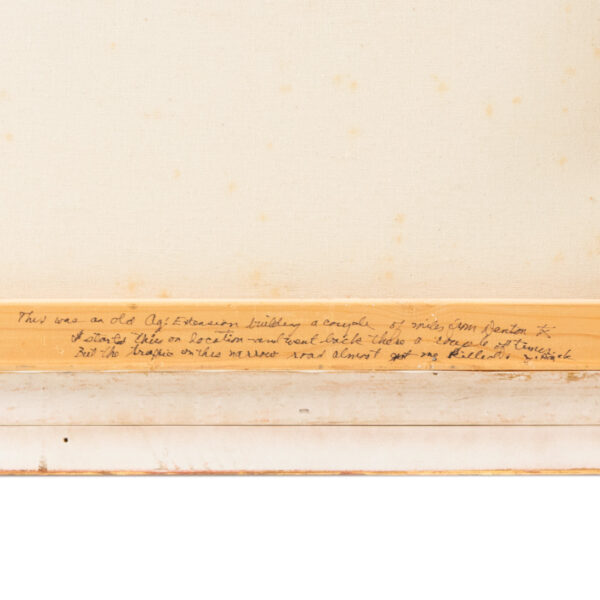 This was an old Ag. Extension building a couple of miles from Denton Tx
I started this on location - and went back there a couple of times
But the traffic on this narrow road almost got me killed!